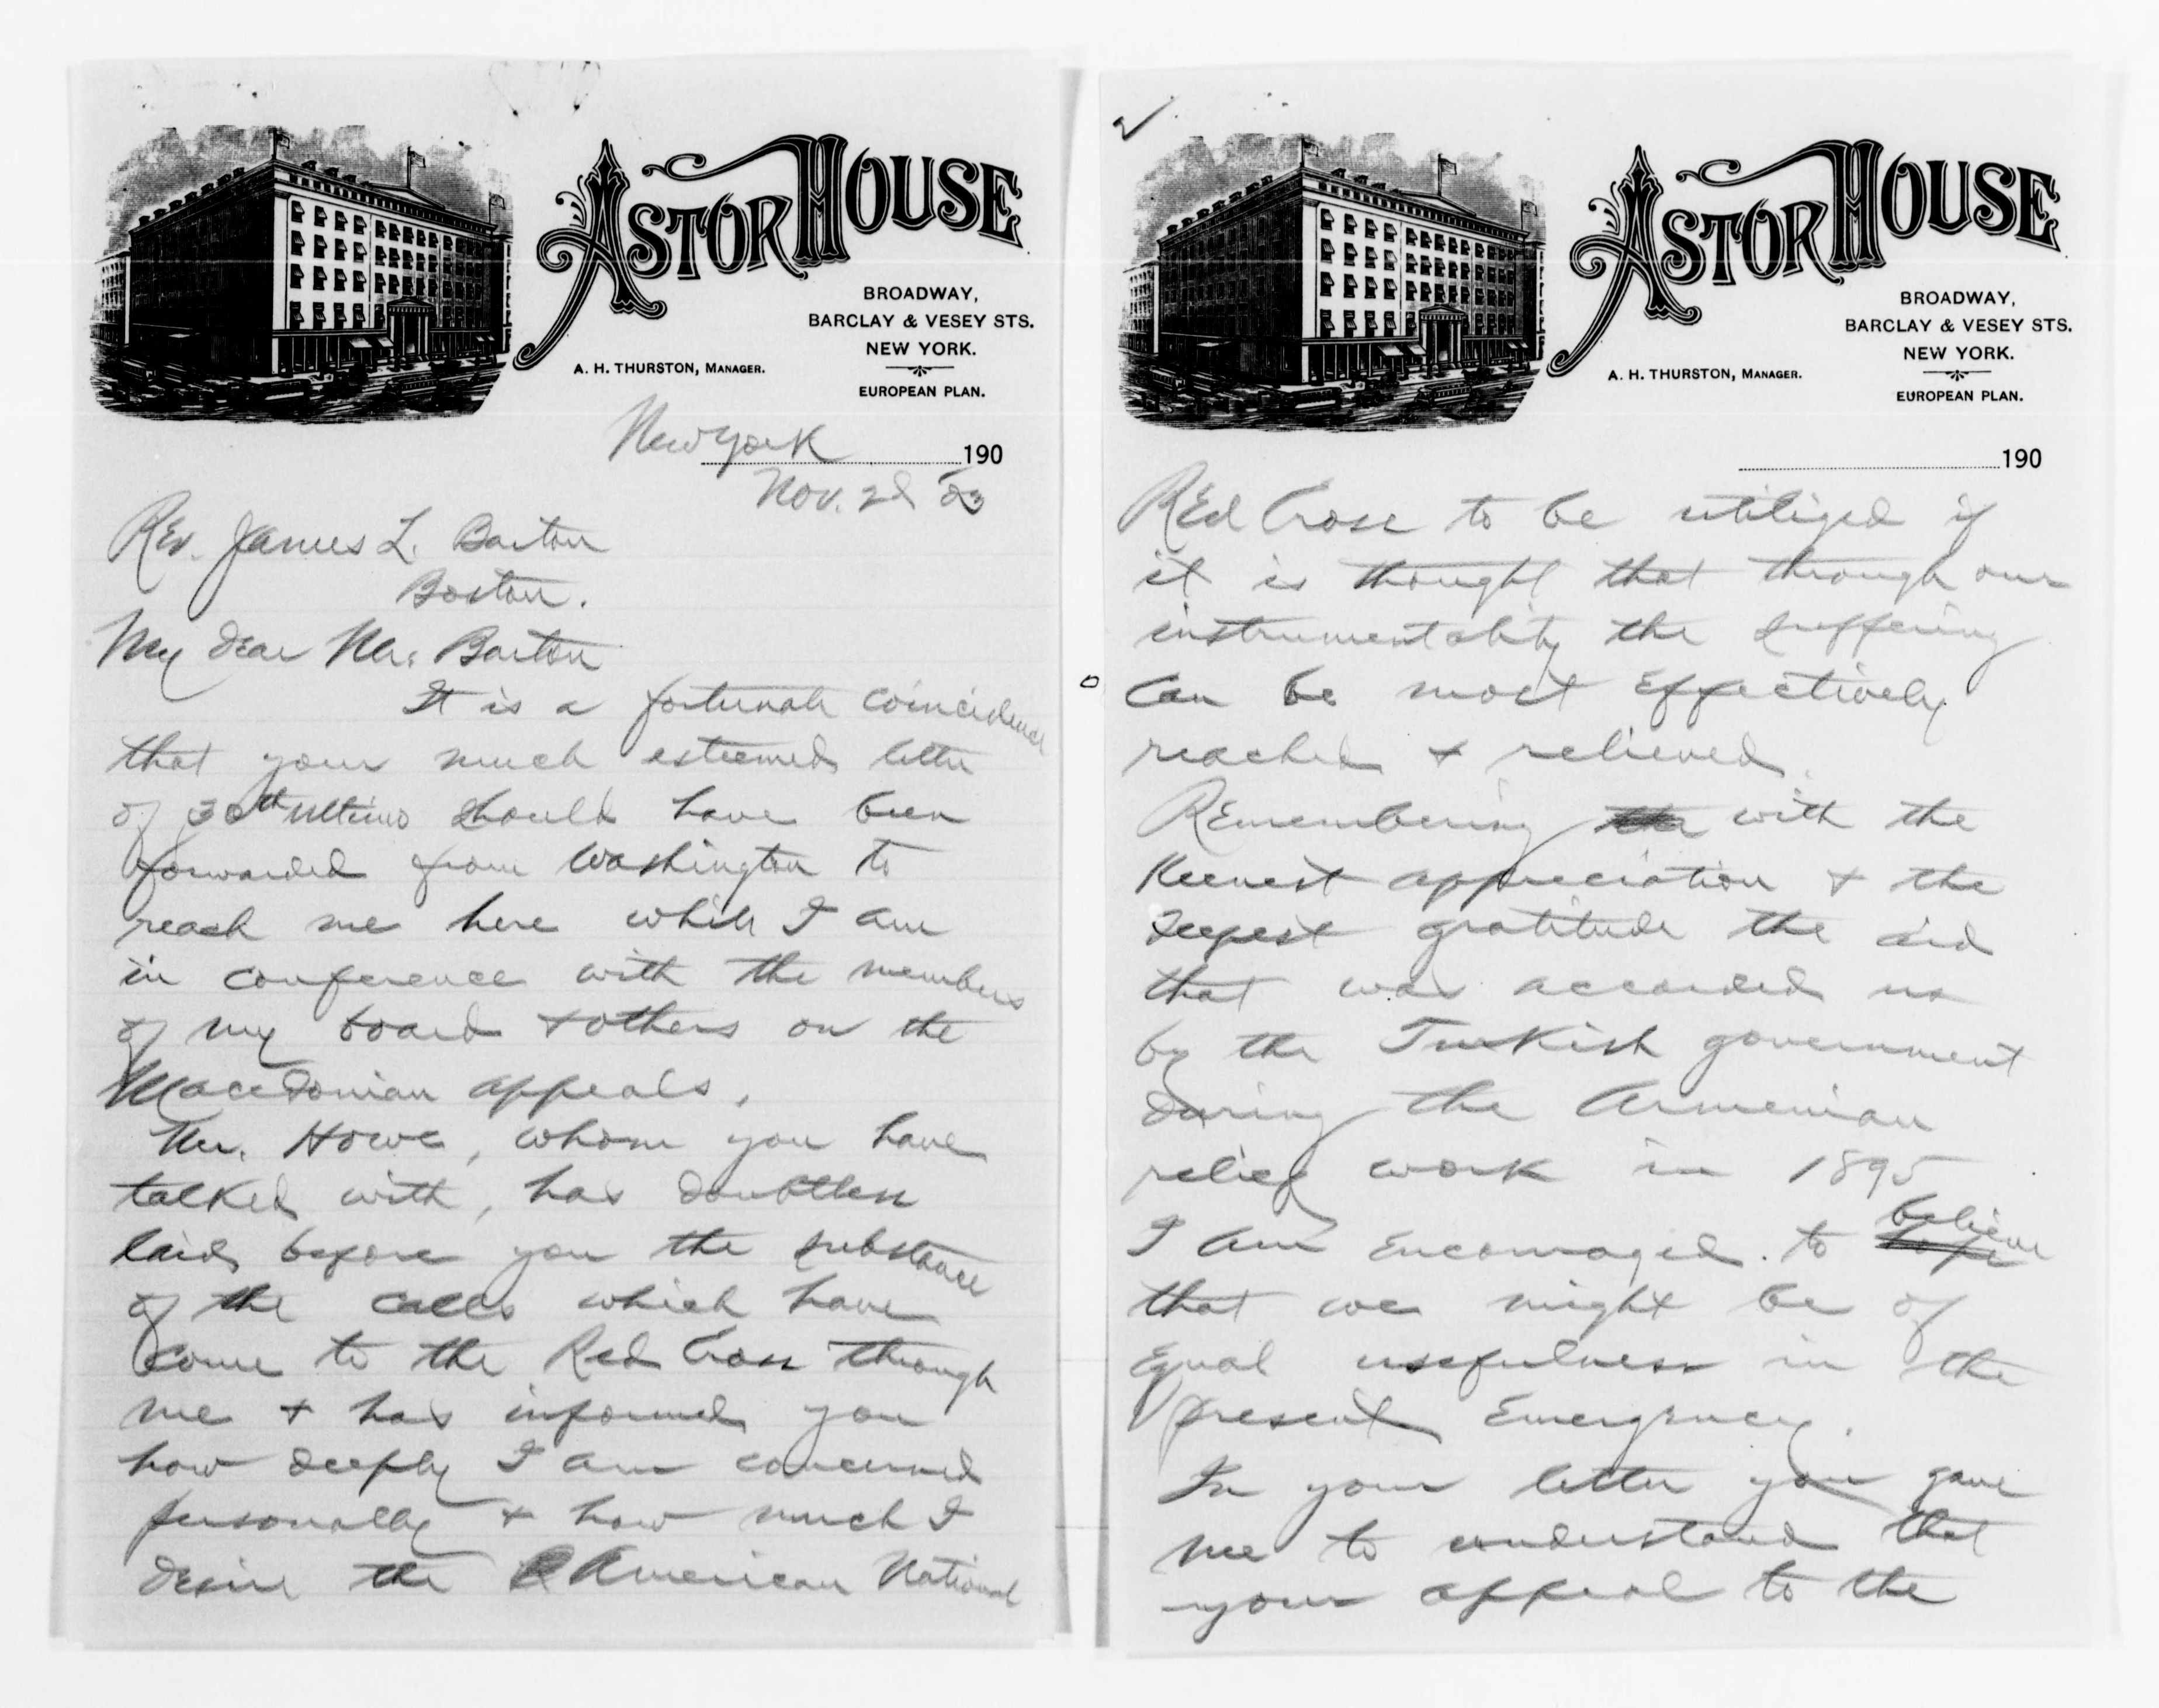 ASTOR HOUSE
BROADWAY,
BARCLAY & VESEY STS.
NEW YORK.
A. H. THURSTON, MANAGER.
EUROPEAN PLAN.
New York 190
Nov. 2d 03
Rev. James L. Barton
Boston.
My dear Mr. Barton
It is a fortunate coincidence
that your much esteemed letter
of 30th ultimo should have been
forwarded from Washington to
reach me here while I am
in conference with the members
of my board & others on the
Macedonian appeals.
Mr. Howe, whom you have
talked with, has doubtless
laid before you the substance
of the calls which have
come to the Red Cross through
me & has informed you
how deeply I am concerned
personally & how much I
desire the American National
2
ASTOR HOUSE
BROADWAY,
BARCLAY & VESEY STS.
NEW YORK.
A. H. THURSTON, MANAGER.
EUROPEAN PLAN.
190
Red Cross to be utilized if
it is thought that through our
instrumentality the suffering
can be most effectively
reached & relieved.
Remembering the with the
keenest appreciation & the
deepest gratitude the aid
that was accorded us
by the Turkish government
during the Armenian
relief work in 1895
believe
I am encouraged to hope
that we might be of
equal usefulness in the
present emergency.
In your letter you gave
me to understand that
your appeal to the